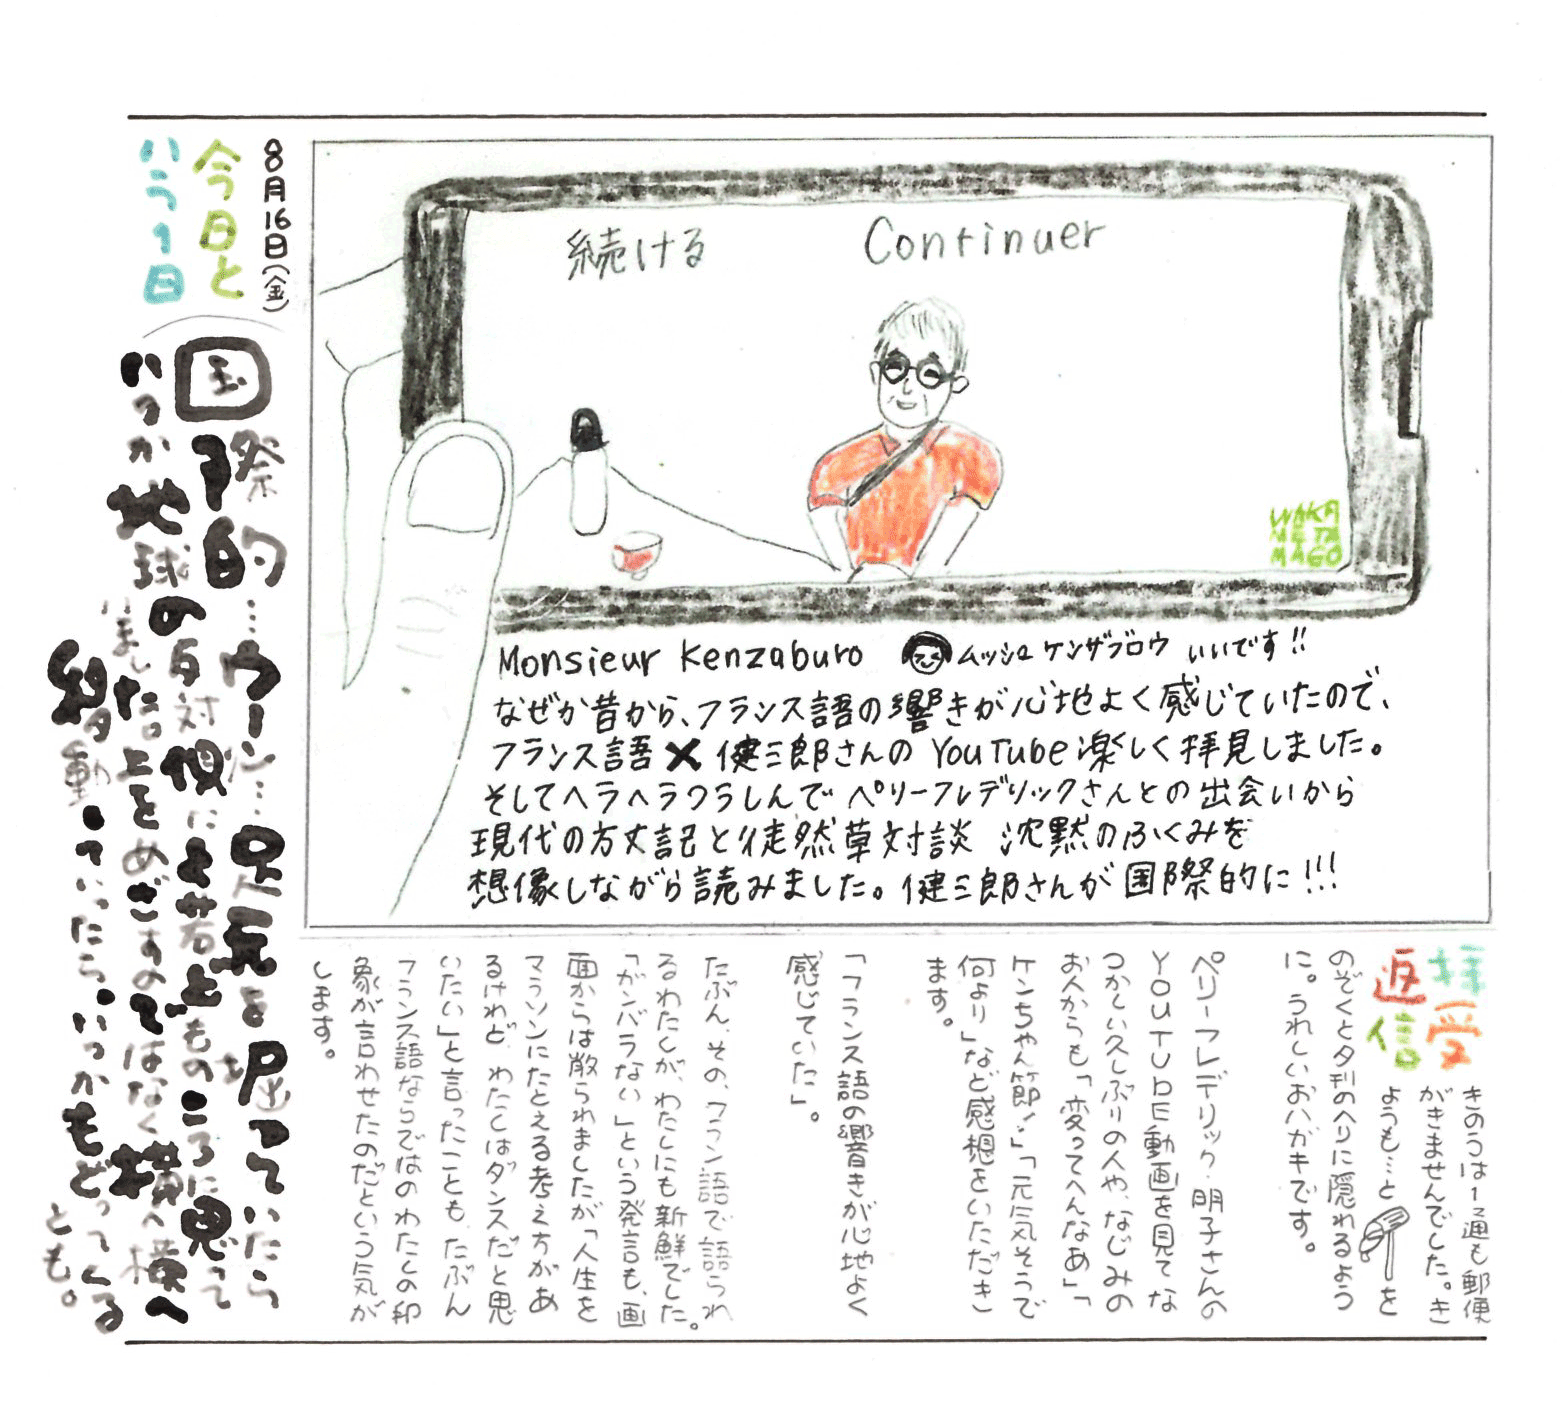 8月16日(金)
今日と
いう1日
続ける
Continuer
WAKA
META
MAGO
Monsieur Kenzaburo ムッシュ ケンザブロウ いいです!!
なぜか昔から、フランス語の響きが心地よく感じていたので、
フランス語✕健三郎さんの YouTube楽しく拝見しました。
そしてヘラヘラつうしんで ペリーフレデリックさんとの出会いから
現代の方丈記と徒然草対談 沈黙のふくみを
想像しながら読みました。健三郎さんが国際的に!!!
国際的…ウーン…足元を堀っていたら
いつか地球の反対側にと若いもののころに思って
いました。上をめざすのではなく横へ横へ
移動していったら、いつかもどってくる
とも。
拝受
返信
きのうは1通も郵便
がきませんでした。き
ょうも…と を
のぞくと夕刊のへりに隠れるよう
に。うれしいおハガキです。
ペリーフレデリック・明子さんの
YOUTUBE動画を見てな
つかしい久しぶりの人や、なじみの
お人からも「変ってへんなあ」「
ケンちゃん節!」「元気そうで
何より」など感想をいただき
ます。
「フランス語の響きが心地よく
感じていた」。
たぶん、その、フラン語で語られ
るわたしが、わたしにも新鮮でした。
「ガンバラない」という発言も、画
面からは散られましたが「人生を
マラソンにたとえる考え方があ
るけれど、わたしはダンスだと思
いたい」と言ったことも、たぶん
フランス語ならではのわたしの印
象が言わせたのだという気が
します。